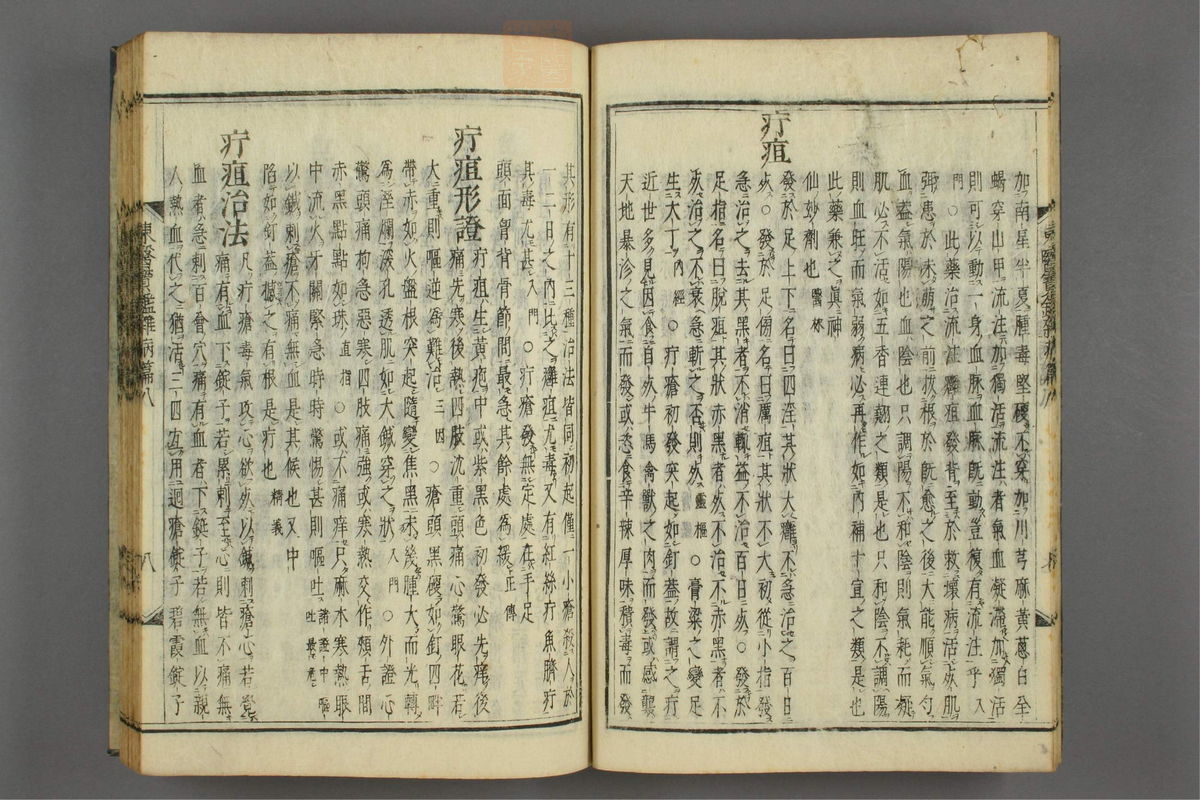 加南星半夏腫毒堅硬不穿加川芎麻黃蔥白全
蝎穿山甲流注加獨活流注者氣血凝滯加獨活
則可以動一身血脉血脉既動豈復有流注乎入
門○此藥治流注癰疽發背至於救壞病活死肌
弭患於未萌之前拔根於既愈之後大能順氣勻
血蓋氣陽也血陰也只調陽不和陰則氣耗而
肌必不活如五香連翹之類是也只和陰不調陽
則血旺而氣弱病必再作如內補十宣之類是也
此藥兼之眞神
仙妙劑也醫林
疔疽
發於足上下名曰四淫其狀大癰不急治之百日
死○發於足傍名曰厲疽其狀不大初從小指發
急治之去其黑者不消輒益不治百日死○發於
足指名曰脫疽其狀赤黑者死不治不赤黑者不
死治之不衰急斬之否則死靈樞○膏粱之變足
生大丁內經○疔瘡初發突起如釘蓋故謂之疔
近世多見因食自死牛馬禽獸之肉而發或感襲
天地暴沴之氣而發或恣食辛辣厚味積毒而發
其形有十三種治法皆同初起僅一小瘡殺人於
一二日之內比之癰疽尤毒又有紅絲疔魚臍疔
其毒尤甚入門○疔瘡發無定處在手足
頭面胷背骨節間最急其餘處爲緩正傳
疔疽形證
疔疽生黃疱中或紫黑色初發必先痒後
痛先寒後熱四肢沈重頭痛心驚眼花若
大重則嘔逆爲難治三因○瘡頭黑硬如釘四畔
帶赤如火盤根突起隨變焦黑未幾腫大而光轉
爲溼爛深孔透肌如大鍼穿之狀入門○外證心
驚頭痛拘急惡寒四肢痛強或寒熱交作頰舌間
赤黑點點如珠直指○或不痛痒只麻木寒熱眼
中流火牙關緊急時時驚惕甚則嘔吐諸證中嘔吐最危
以鍼刺瘡不痛無血是其候也又中
陷如釘蓋撼之有根是疔也精義
疔疽治法
凡疔瘡毒氣攻心欲死以鍼刺瘡心若覺
痛有血下錠子若累刺至心則皆不痛無
血者急刺百會穴痛有血者下錠子若無血以親
人熱血代之猶活三四方用迴瘡錠子碧霞錠子
東醫寶鑑雜病篇八
八